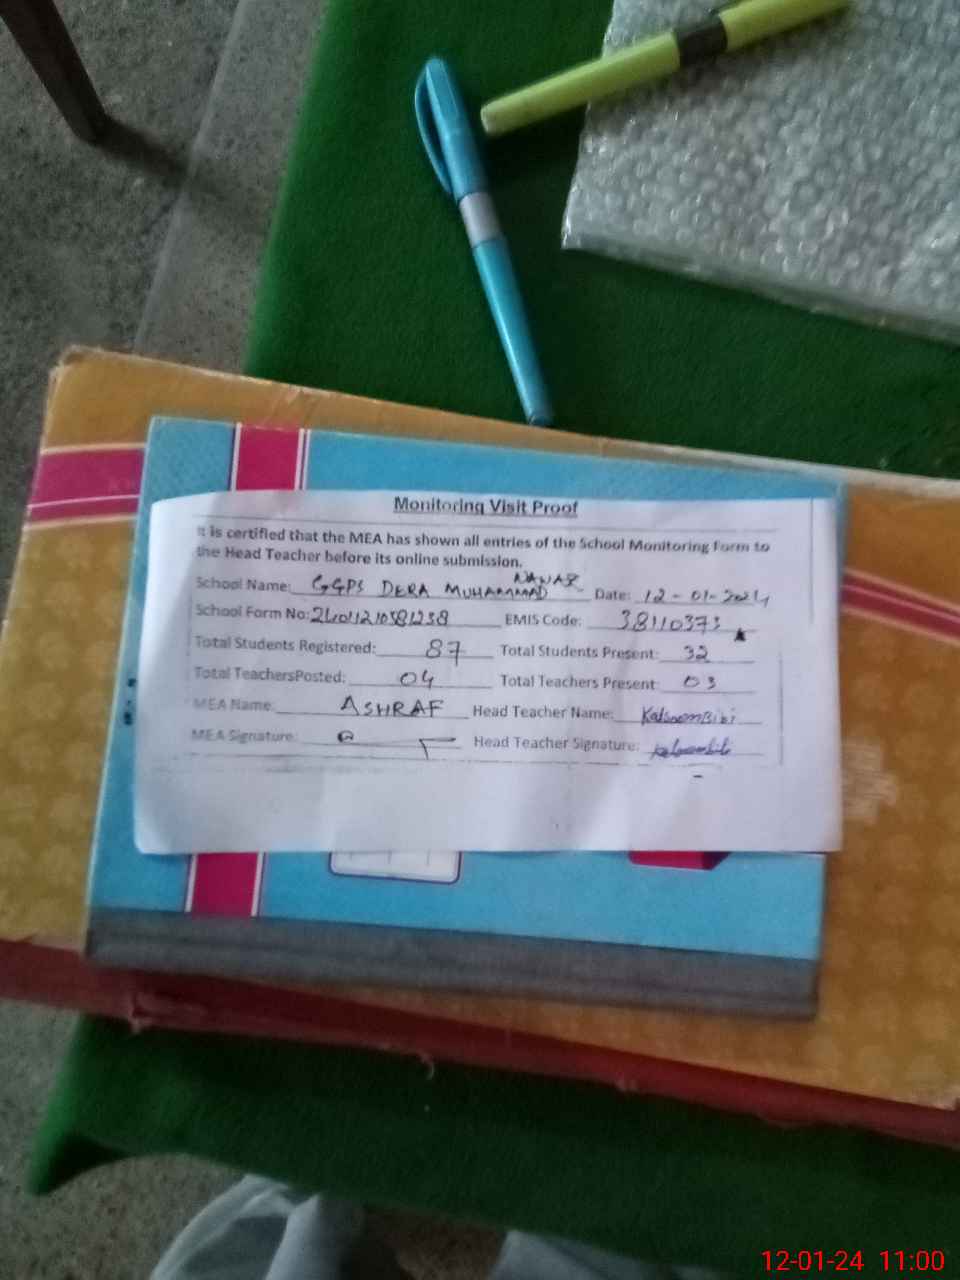 Monitoring Visit Proof
It is certified that the MEA has shown all entries of the School Monitoring Form to
the Head Teacher before its online submission.
School Name: GGPS DERA MUHAMMAD NAWAZ Date: 12-01-2024
School Form No: EMIS Code: 38110373
Total Students Registered: 87 Total Students Present: 32
Total TeachersPosted: 04 Total Teachers Present: 03
MEA Name: ASHRAF Head Teacher Name: KalsoomBibi
MEA Signature: Head Teacher Signature:
12-01-24 11:00